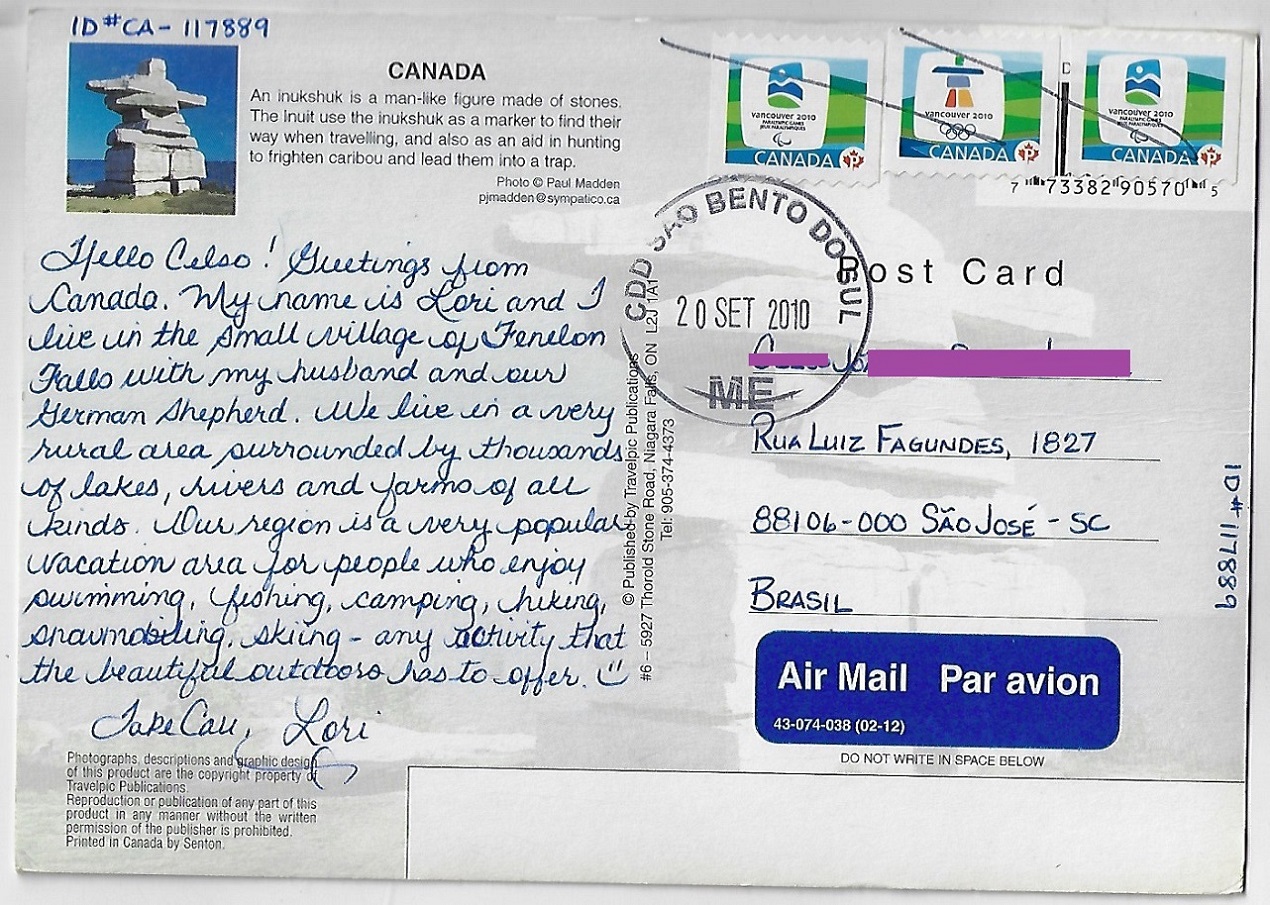 ID#CA-117889
CANADA
An inukshuk is a man-like figure made of stones.
The Inuit use the inukshuk as a marker to find their
way when travelling, and also as an aid in hunting
to frighten caribou and lead them into a trap.
Photo © Paul Madden
pjmadden@sympatico.ca
Hello Celso! Greetings from
Canada. My name is Lori and I
live in the small village of Fenelon
Falls with my husband and our
German Shepherd. We live in a very
rural area surrounded by thousands
of lakes, rivers and farms of all
kinds. Our region is a very popular
vacation area for people who enjoy
swimming, fishing, camping, hiking,
snowmobiling, skiing - any activity that
the beautiful outdoors has to offer.
Take Care, Lori
Photographs, descriptions and graphic design
of this product are the copyright property of
Travelpic Publications.
Reproduction or publication of any part of this
product in any manner without the written
permission of the publisher is prohibited.
Printed in Canada by Senton.
© Published by Travelpic Publications
#6 – 5927 Thorold Stone Road, Niagara Falls, ON L2J 1A1
Tel: 905-374-4373
vancouver 2010
PARALYMPIC GAMES
JEUX PARALYMPIQUES
CANADA P
vancouver 2010
CANADA P
vancouver 2010
PARALYMPIC GAMES
JEUX PARALYMPIQUES
CANADA P
D
7 73382 90570 5
CDD SÃO BENTO DO SUL
20 SET 2010
ME
Post Card
RUA LUIZ FAGUNDES, 1827
88106-000 SÃO JOSÉ - SC
BRASIL
ID#117889
Air Mail Par avion
43-074-038 (02-12)
DO NOT WRITE IN SPACE BELOW